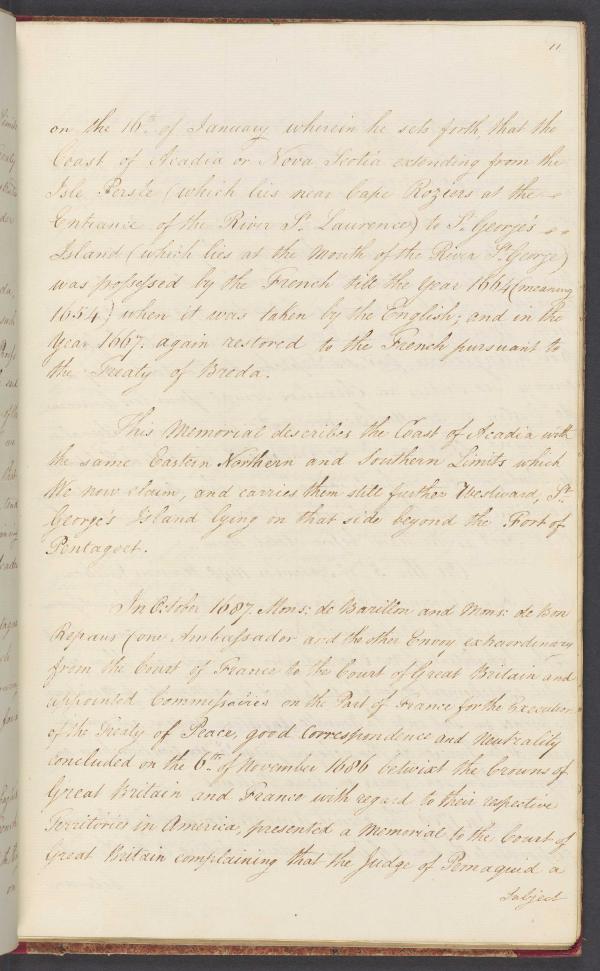 11
on the 16th of January wherein he sets forth, that the
Coast of Acadia or Nova Scotia extending from the
Isle Persée (which lies near Cape Roziers at the
Entrance of the River St. Laurence) to St. George's
Island (which lies at the Mouth of the River St. George)
was possessed by the French till the Year 1664 (meaning
1654) when it was taken by the English; and in the
Year 1667. again restored to the French pursuant to
the Treaty of Breda.
This Memorial describes the Coast of Acadia with
the same Eastern Northern and Southern Limits which
We now claim, and carries them still further Westward, St.
George's Island lying on that side beyond the Fort of
Pentagoet.
In October 1687. Mons: de Barillon and Mons: de Bon
Repaus (one Ambassador and the other Envoy extraordinary
from the Court of France to the Court of Great Britain and
appointed Commissaries on the Part of France for the Execution
of the Treaty of Peace, good Correspondence and Neutrality
concluded on the 6th of November 1686 betwixt the Crowns of
Great Britain and France with regard to their respective
Territories in America, presented a Memorial to the Court of
Great Britain complaining that the Judge of Pemaquid a
Subject